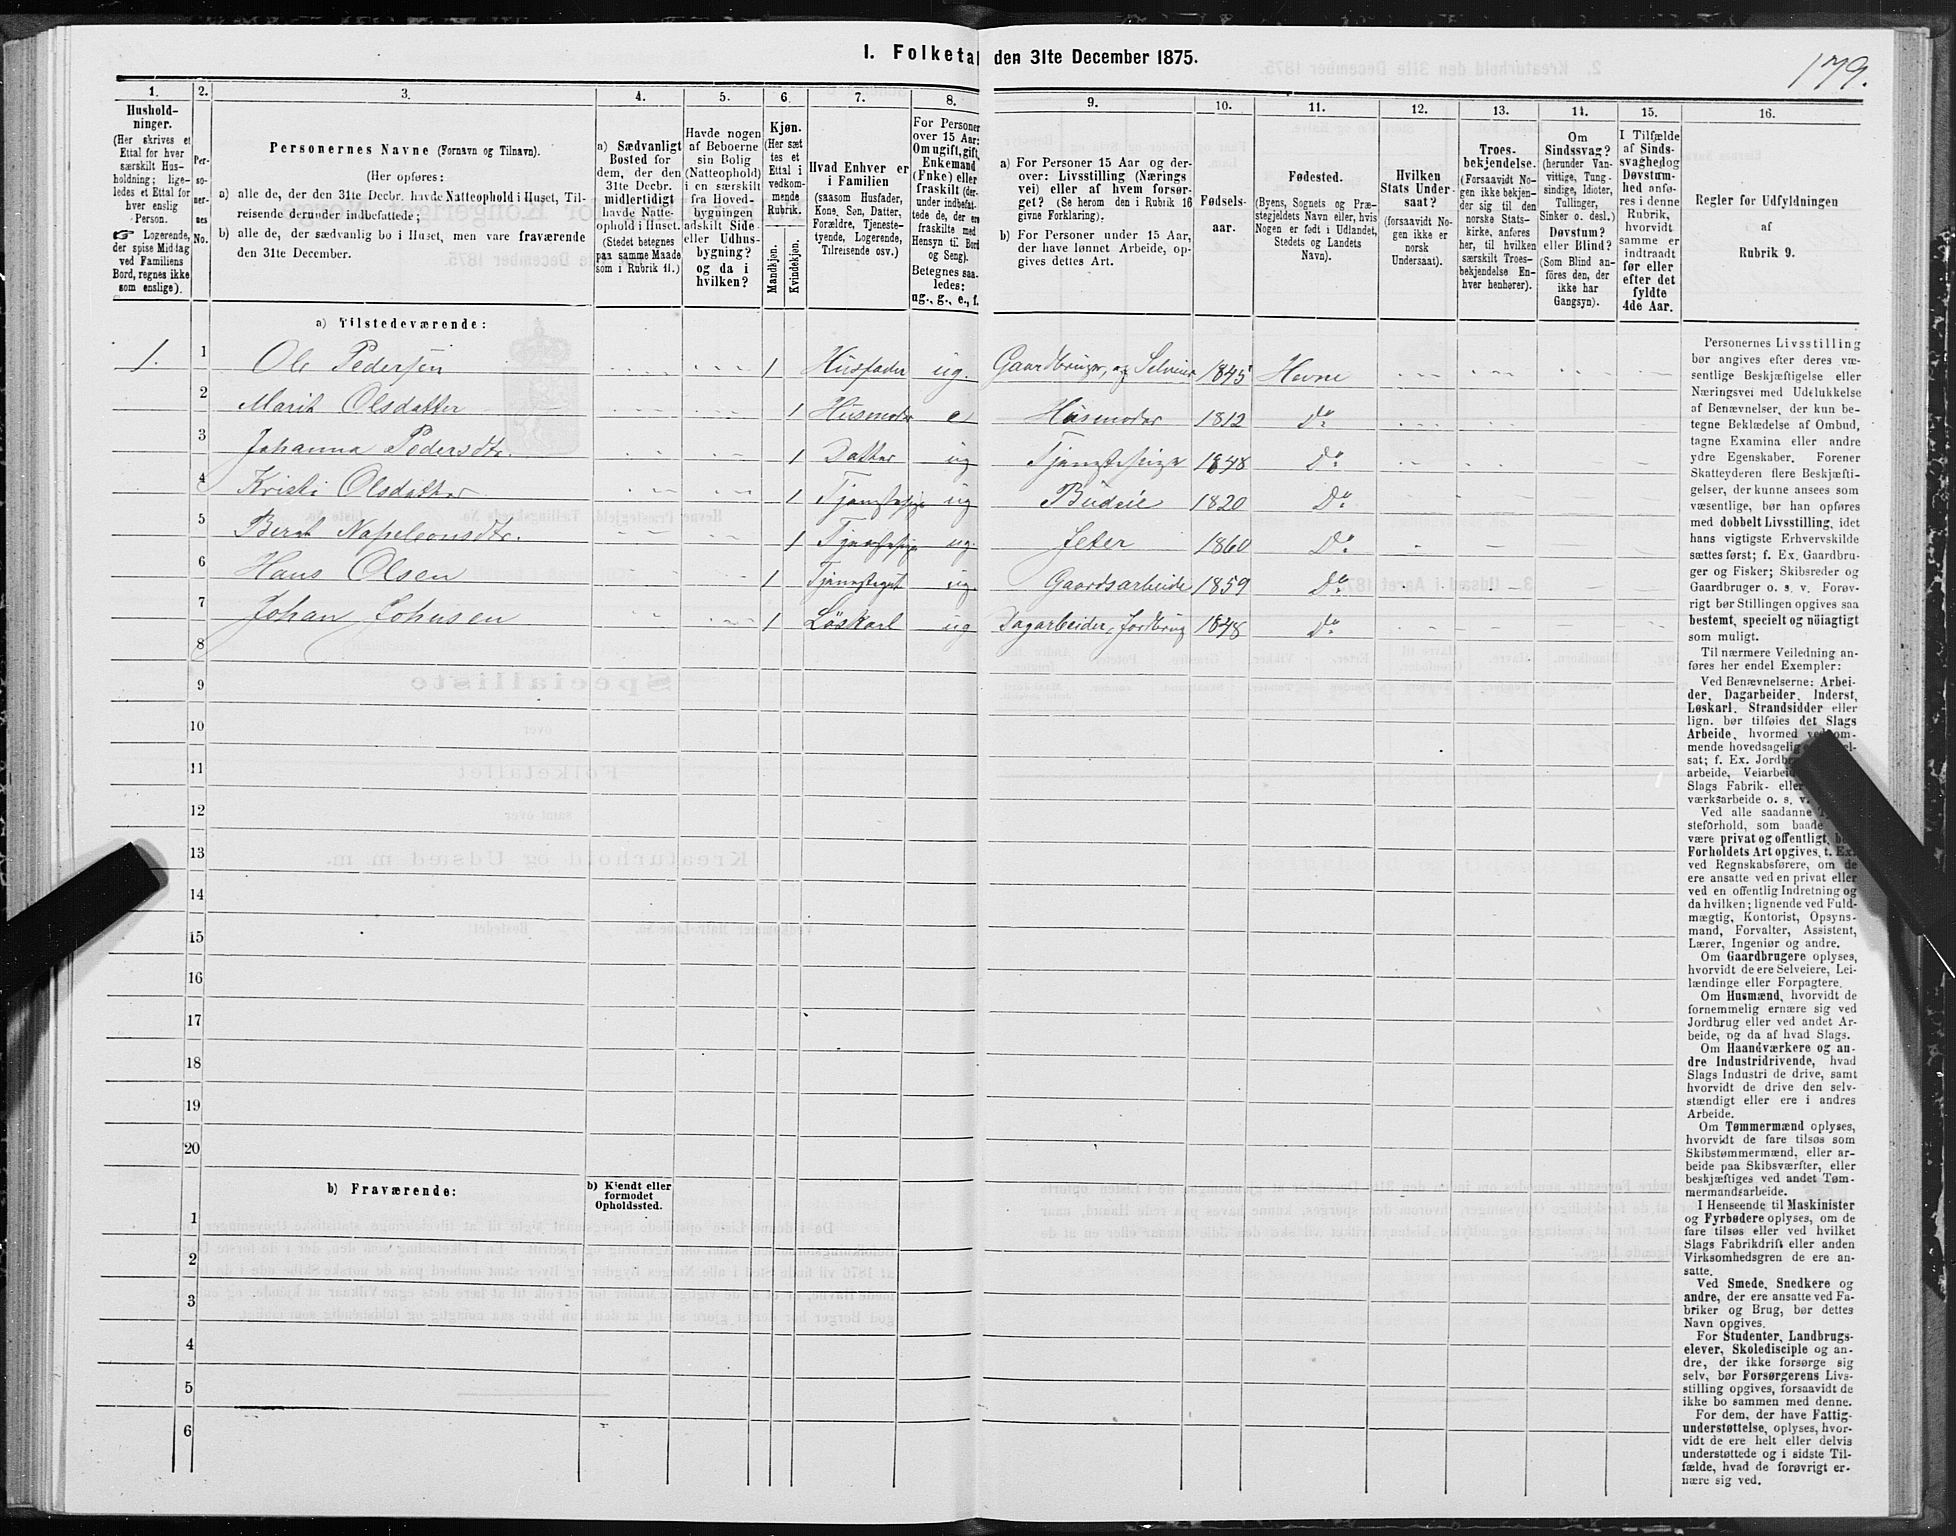 1. Folketal den 31te December 1875.
179.
1.
Hushold-
ninger.
(Her skrives et
Ettal for hver
særskilt Hus-
holdning; lige-
ledes et Ettal for
hver enslig
Person.
☞ Logerende,
der spise Middag
ved Familiens
Bord, regnes ikke
som enslige).
2.
Per-
so-
ner-
nes
No.
3.
Personernes Navne (Fornavn og Tilnavn).
(Her opføres:
a) alle de, der den 31te Decbr. havde Natteophold i Huset, Til-
reisende derunder indbefattede;
b) alle de, der sædvanlig bo i Huset, men vare fraværende
den 31te December.
4.
a) Sædvanligt
Bosted for
dem, der den
31te Decbr.
midlertidigt
havde Natte-
ophold i Huset.
(Stedet betegnes
paa samme Maade
som i Rubrik 11.)
5.
Havde nogen
af Beboerne
sin Bolig
(Natteophold)
i en særskilt
fra Hoved-
bygningen
adskilt Side-
eller Udhus-
bygning?
og da i
hvilken?
6.
Kjøn.
(Her sæt
tes et
Ettal i
vedkom-
mende
Rubrik.
Mandkjøn.
Kvindekjøn.
7.
Hvad Enhver er
i Familien
(saasom Husfader,
Kone, Søn, Datter,
Forældre, Tjeneste-
tyende, Logerende,
Tilreisende osv.)
8.
For Personer
over 15 Aar:
Om ugift, gift,
Enkemand
(Enke) eller
fraskilt (der-
under indbefat-
tede de, der ere
fraskilte med
Hensyn til Bord
og Seng).
Betegnes saa-
ledes:
ug., g., e., f.
9.
a) For Personer 15 Aar og der-
over: Livsstilling (Nærings
vei) eller af hvem forsør-
get? (Se herom den i Rubrik 16
givne Forklaring).
b) For Personer under 15 Aar,
der have lønnet Arbeide, op-
gives dettes Art.
10.
Fødsels-
aar.
11.
Fødested.
(Byens, Sognets og Præ-
stegjeldets Navn eller, hvis
Nogen er født i Udlandet,
Stedets og Landets
Navn).
12.
Hvilken
Stats Under-
saat?
(forsaavidt No-
gen ikke er
norsk
Undersaat).
13.
Troes-
bekjendelse.
(Forsaavidt No-
gen ikke bekjen-
der sig til den
norske Stats-
kirke, anføres
her, til hvilken
særskilt Troes-
bekjendelse En-
hver henhører).
14.
Om
Sindssvag?
(herunder Van-
vittige, Tung-
sindige, Idioter,
Tullinger,
Sinker o. desl.)
Døvstum?
eller Blind?
(Som Blind an-
føres den, der
ikke har
Gangsyn).
15.
I Tilfælde
af Sinds-
svaghed og
Døvstum-
hed anfø-
res i denne
Rubrik,
hvorvidt
samme er
indtraadt
før eller
efter det
fyldte
4de Aar.
16.
Regler for Udfyldningen
af
Rubrik 9.
a) Tilstedeværende:
1. 1 Ole Pedersen 1 Husfader ug. Gaardbruger, og Selveier 1845 Hevne
2 Marit Olsdatter 1 Husmoder e Husmoder 1812 Do
3 Johanna Pedersdtr. 1 Datter ug Tjenstepige 1848 Do
4 Kristi Olsdatter 1 Tjenstepige ug Budeie 1820 Do
5 Berit Napoleonsdtr. 1 Tjenstepige ug. Jeter 1860 Do
6 Hans Olsen 1 Tjenstegut ug. Gaardsarbeide 1859 Do
7 Johan Johnsen 1 Løskarl ug Dagarbeider, Jordbrug 1848 Do
8
9
10
11
12
13
14
15
16
17
18
19
20
b) Fraværende:
b) Kjendt eller
formodet
Opholdssted.
1
2
3
4
5
6
Personernes Livsstilling
bør angives efter deres væ-
sentlige Beskjæftigelse eller
Næringsvei med Udelukkelse
af Benævnelser, der kun be-
tegne Beklædelse af Ombud,
tagne Examina eller andre
ydre Egenskaber. Forener
Skatteyderen flere Beskjæfti-
gelser, der kunne ansees som
væsentlige, bør han opføres
med dobbelt Livsstilling, idet
hans vigtigste Erhvervskilde
sættes først; f. Ex. Gaardbru-
ger og Fisker; Skibsreder og
Gaardbruger o. s. v. Forøv-
rigt bør Stillingen opgives saa
bestemt, specielt og nöiagtigt
som muligt.
Til nærmere Veiledning an-
føres her endel Exempler:
Ved Benævnelserne: Arbei-
der, Dagarbeider, Inderst,
Løskarl, Strandsidder eller
lign. bør tilføies det Slags
Arbeide, hvormed vedkom-
mende hovedsagelig
sat; f. Ex.
arbeide,
Slags Fabrik- eller
værksarbeide o. s. v.
Ved alle saadanne
steforhold, som baade
være privat og offentligt,
Forholdets Art opgives, t. Ex.
ved Regnskabsførere, om de
ere ansatte ved en privat eller
ved en offentlig Indretning og
da hvilken; lignende ved Fuld-
mægtig, Kontorist, Opsyns-
mand, Forvalter, Assistent,
Lærer, Ingeniør og andre.
Om Gaardbrugere oplyses,
hvorvidt de ere Selveiere, Lei-
lændinge eller Forpagtere.
Om Husmænd, hvorvidt de
fornemmelig ernære sig ved
Jordbrug eller ved andet Ar-
beide, og da af hvad Slags.
Om Haandværkere og an-
dre Industridrivende, hvad
Slags Industri de drive, samt
hvorvidt de drive den selv-
stændigt eller ere i andres
Arbeide.
Om Tømmermænd oplyses,
hvorvidt de fare tilsøs som
Skibstømmermænd, eller ar-
beide paa Skibsværfter, eller
beskjæftiges ved andet Tøm-
mermandsarbeide.
I Henseende til Maskinister
og Fyrbødere oplyses, om de
fare tilsøs eller ved hvilket
Slags Fabrikdrift eller anden
Virksomhedsgren de ere an-
satte.
Ved Smede, Snedkere og
andre, der ere ansatte ved Fa-
briker og Brug, bør dettes
Navn opgives.
For Studenter, Landbrugs-
elever, Skoledisciple og an-
dre, der ikke forsørge sig
selv, bør Forsørgerens Livs-
stilling opgives, forsaavidt de
ikke bo sammen med denne.
For dem, der have Fattig-
understøttelse, oplyses, hvor-
vidt de ere helt eller delvis
understøttede og i sidste Til-
fælde, hvad de forøvrigt er-
nære sig ved.